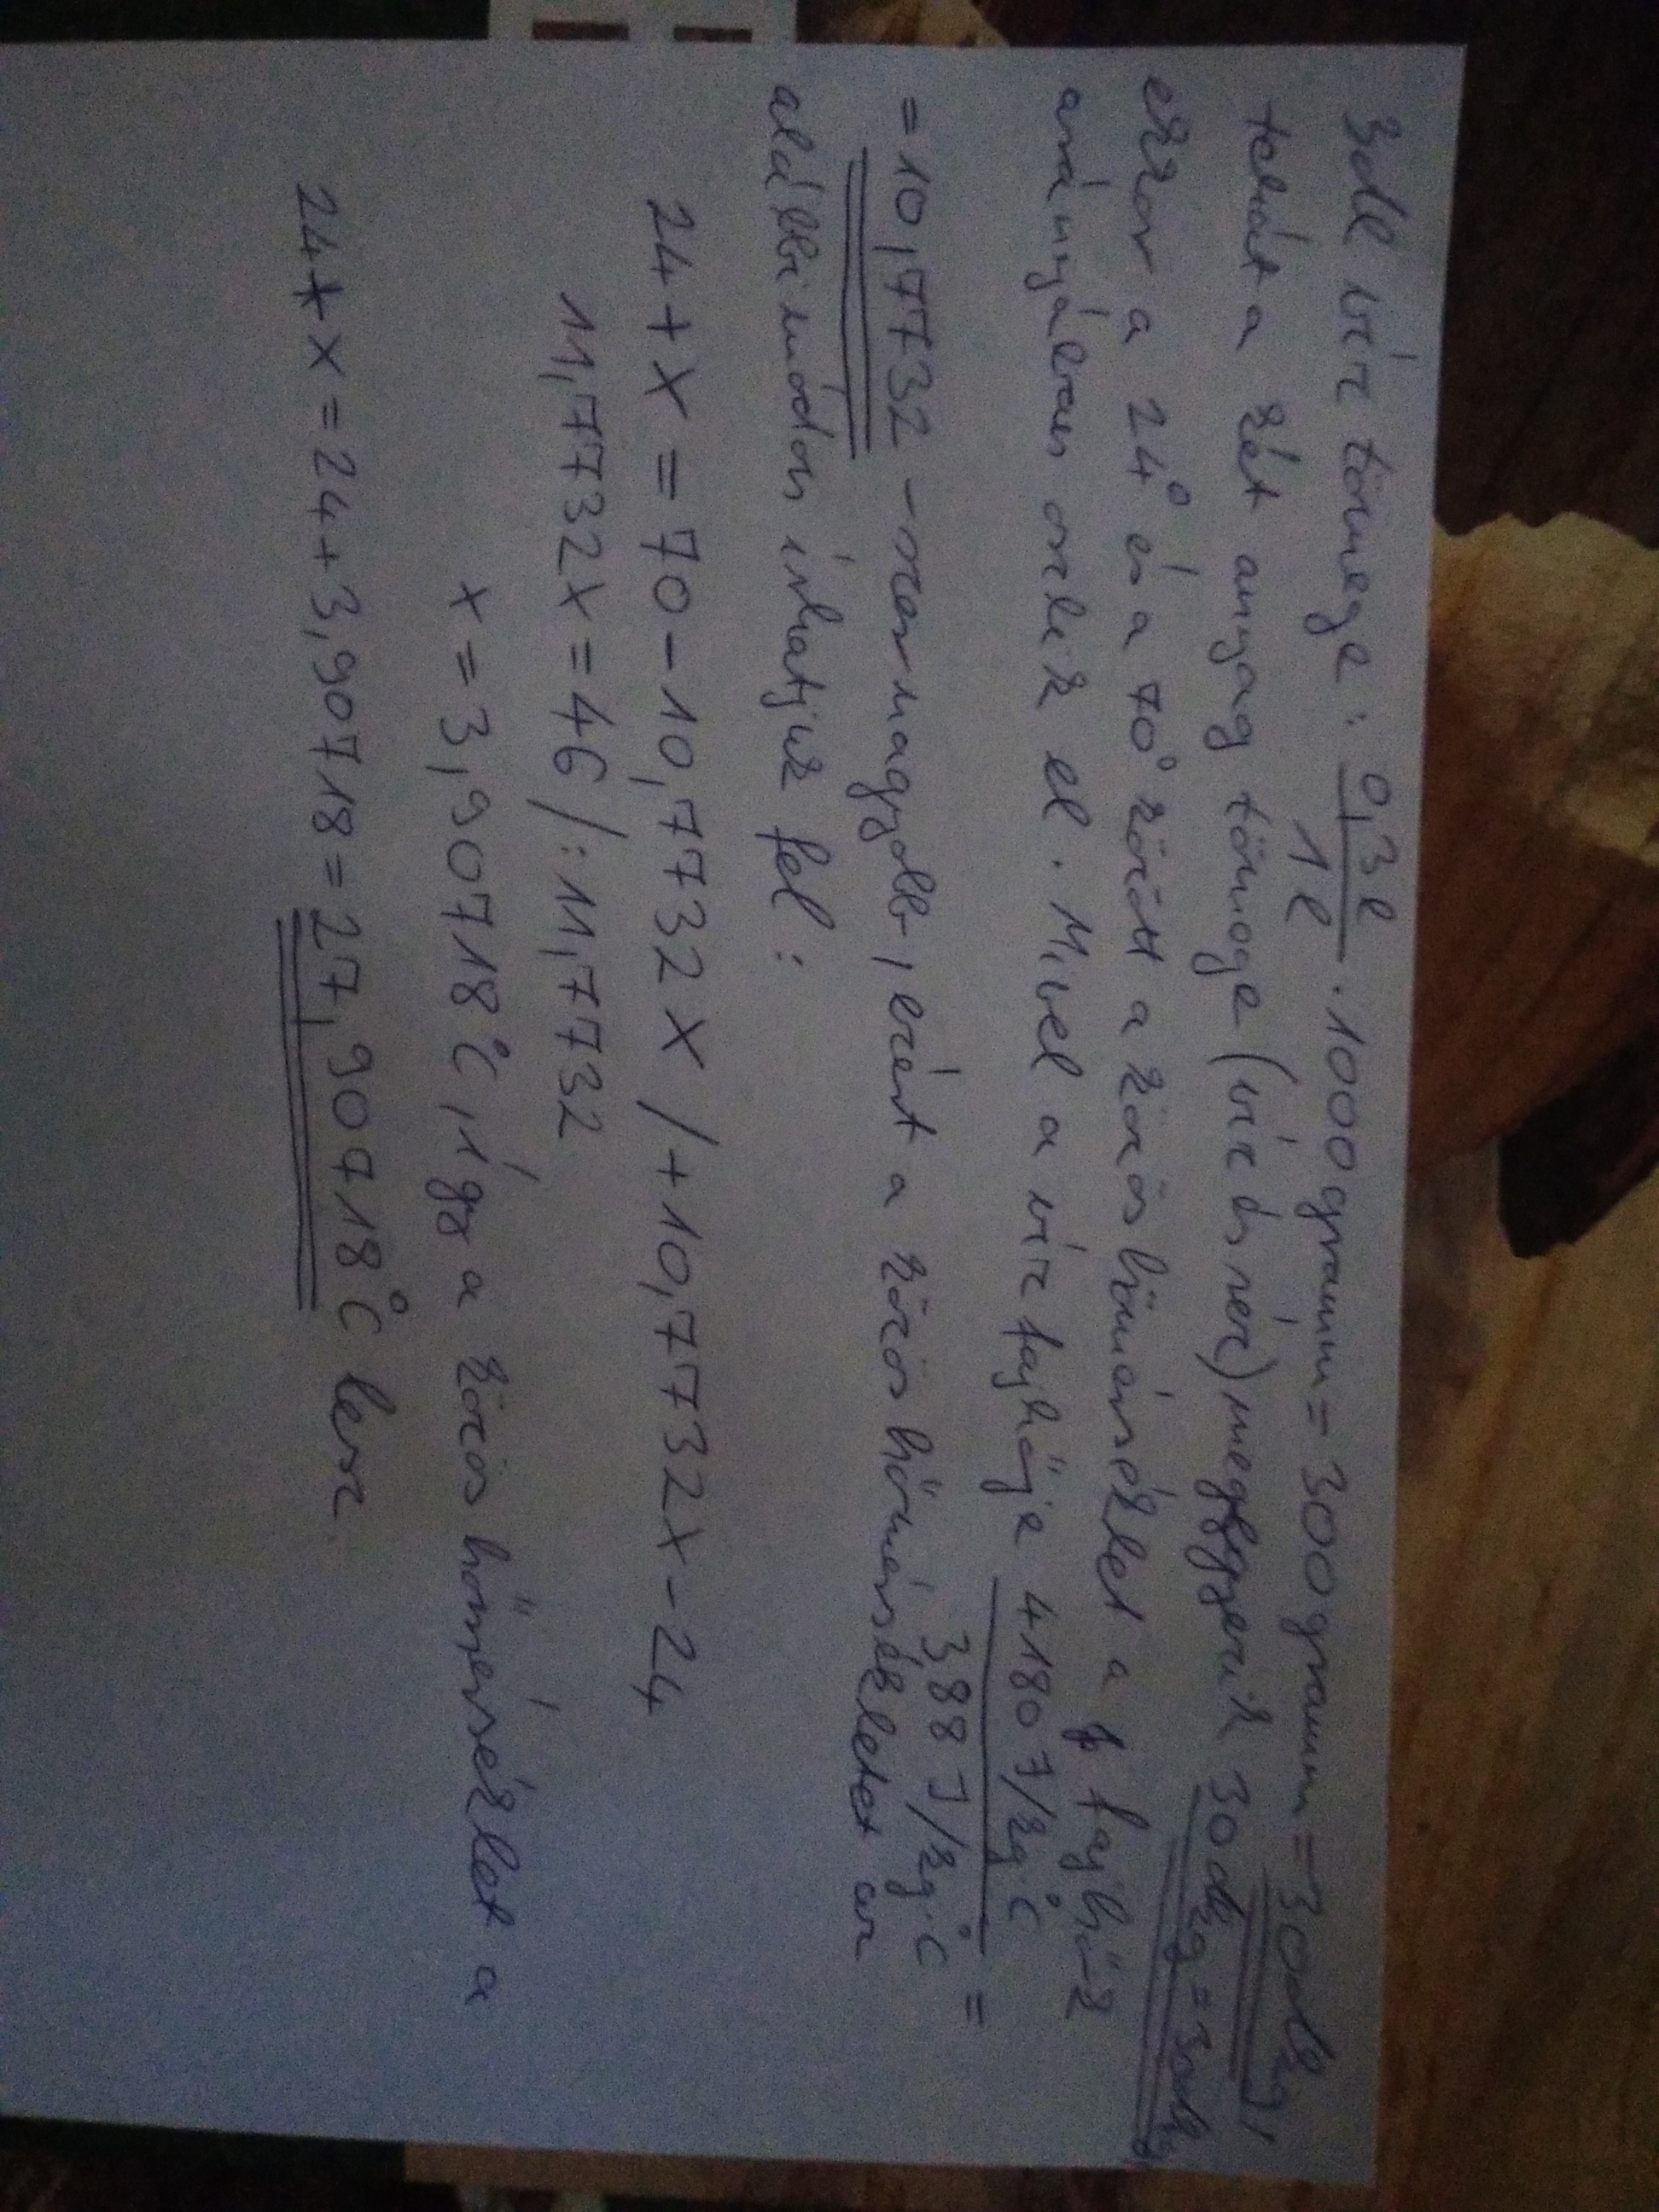 3dl víz tömege: 0,3l / 1l · 1000 gramm = 300 gramm = 30dkg,
tehát a két anyag tömege (víz és réz) megegyezik 30dkg = 30dkg
ekkor a 24° és a 70° között a közös hőmérséklet a fajhők
arányában oszlik el. Mivel a víz fajhője 4180 J/kg·°C / 388 J/kg·°C =
= 10,7732 -szer nagyobb, ezért a közös hőmérsékletet az
alábbi módon írhatjuk fel:
24 + x = 70 - 10,7732x / + 10,7732x - 24
11,7732x = 46 / : 11,7732
x = 3,90718°C, így a közös hőmérséklet a
24 + x = 24 + 3,90718 = 27,90718°C lesz.